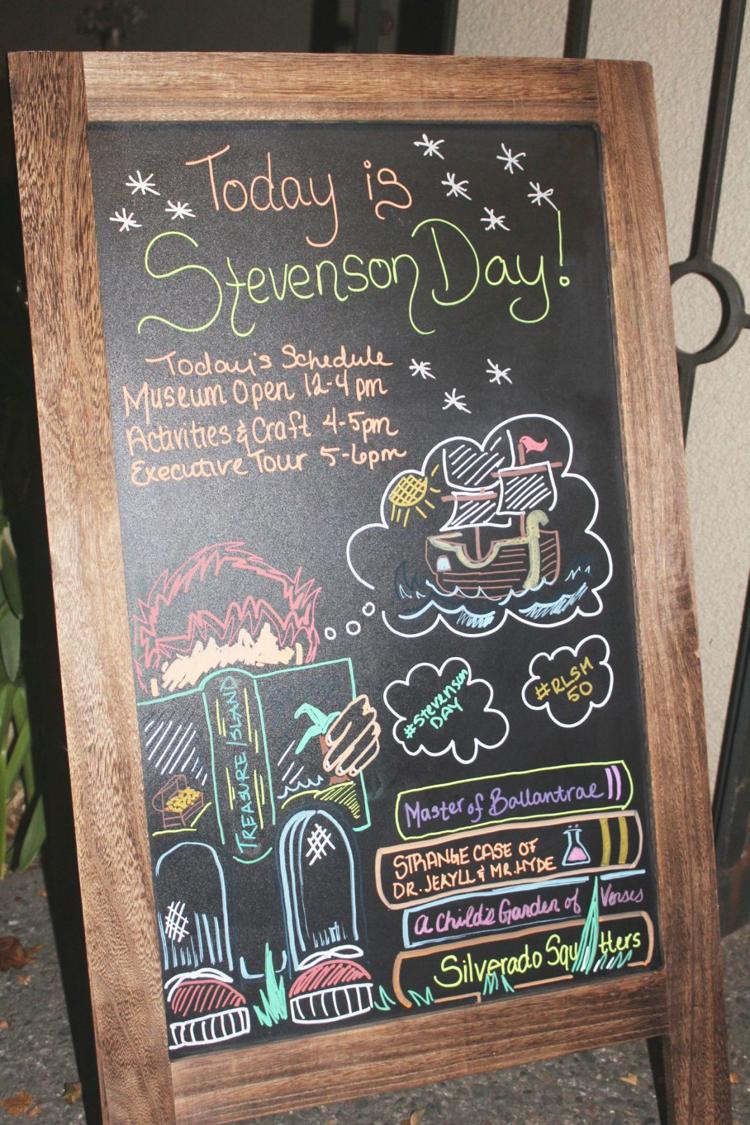 Today is
Stevenson Day!
Today's Schedule
Museum Open 12-4 pm
Activities & Craft 4-5pm
Executive Tour 5-6pm
TREASURE ISLAND
#Stevenson
DAY
#RLSM
50
Master of Ballantrae
STRANGE CASE OF
DR. JEKYLL & MR. HYDE
A Child's Garden of Verses
Silverado Squatters